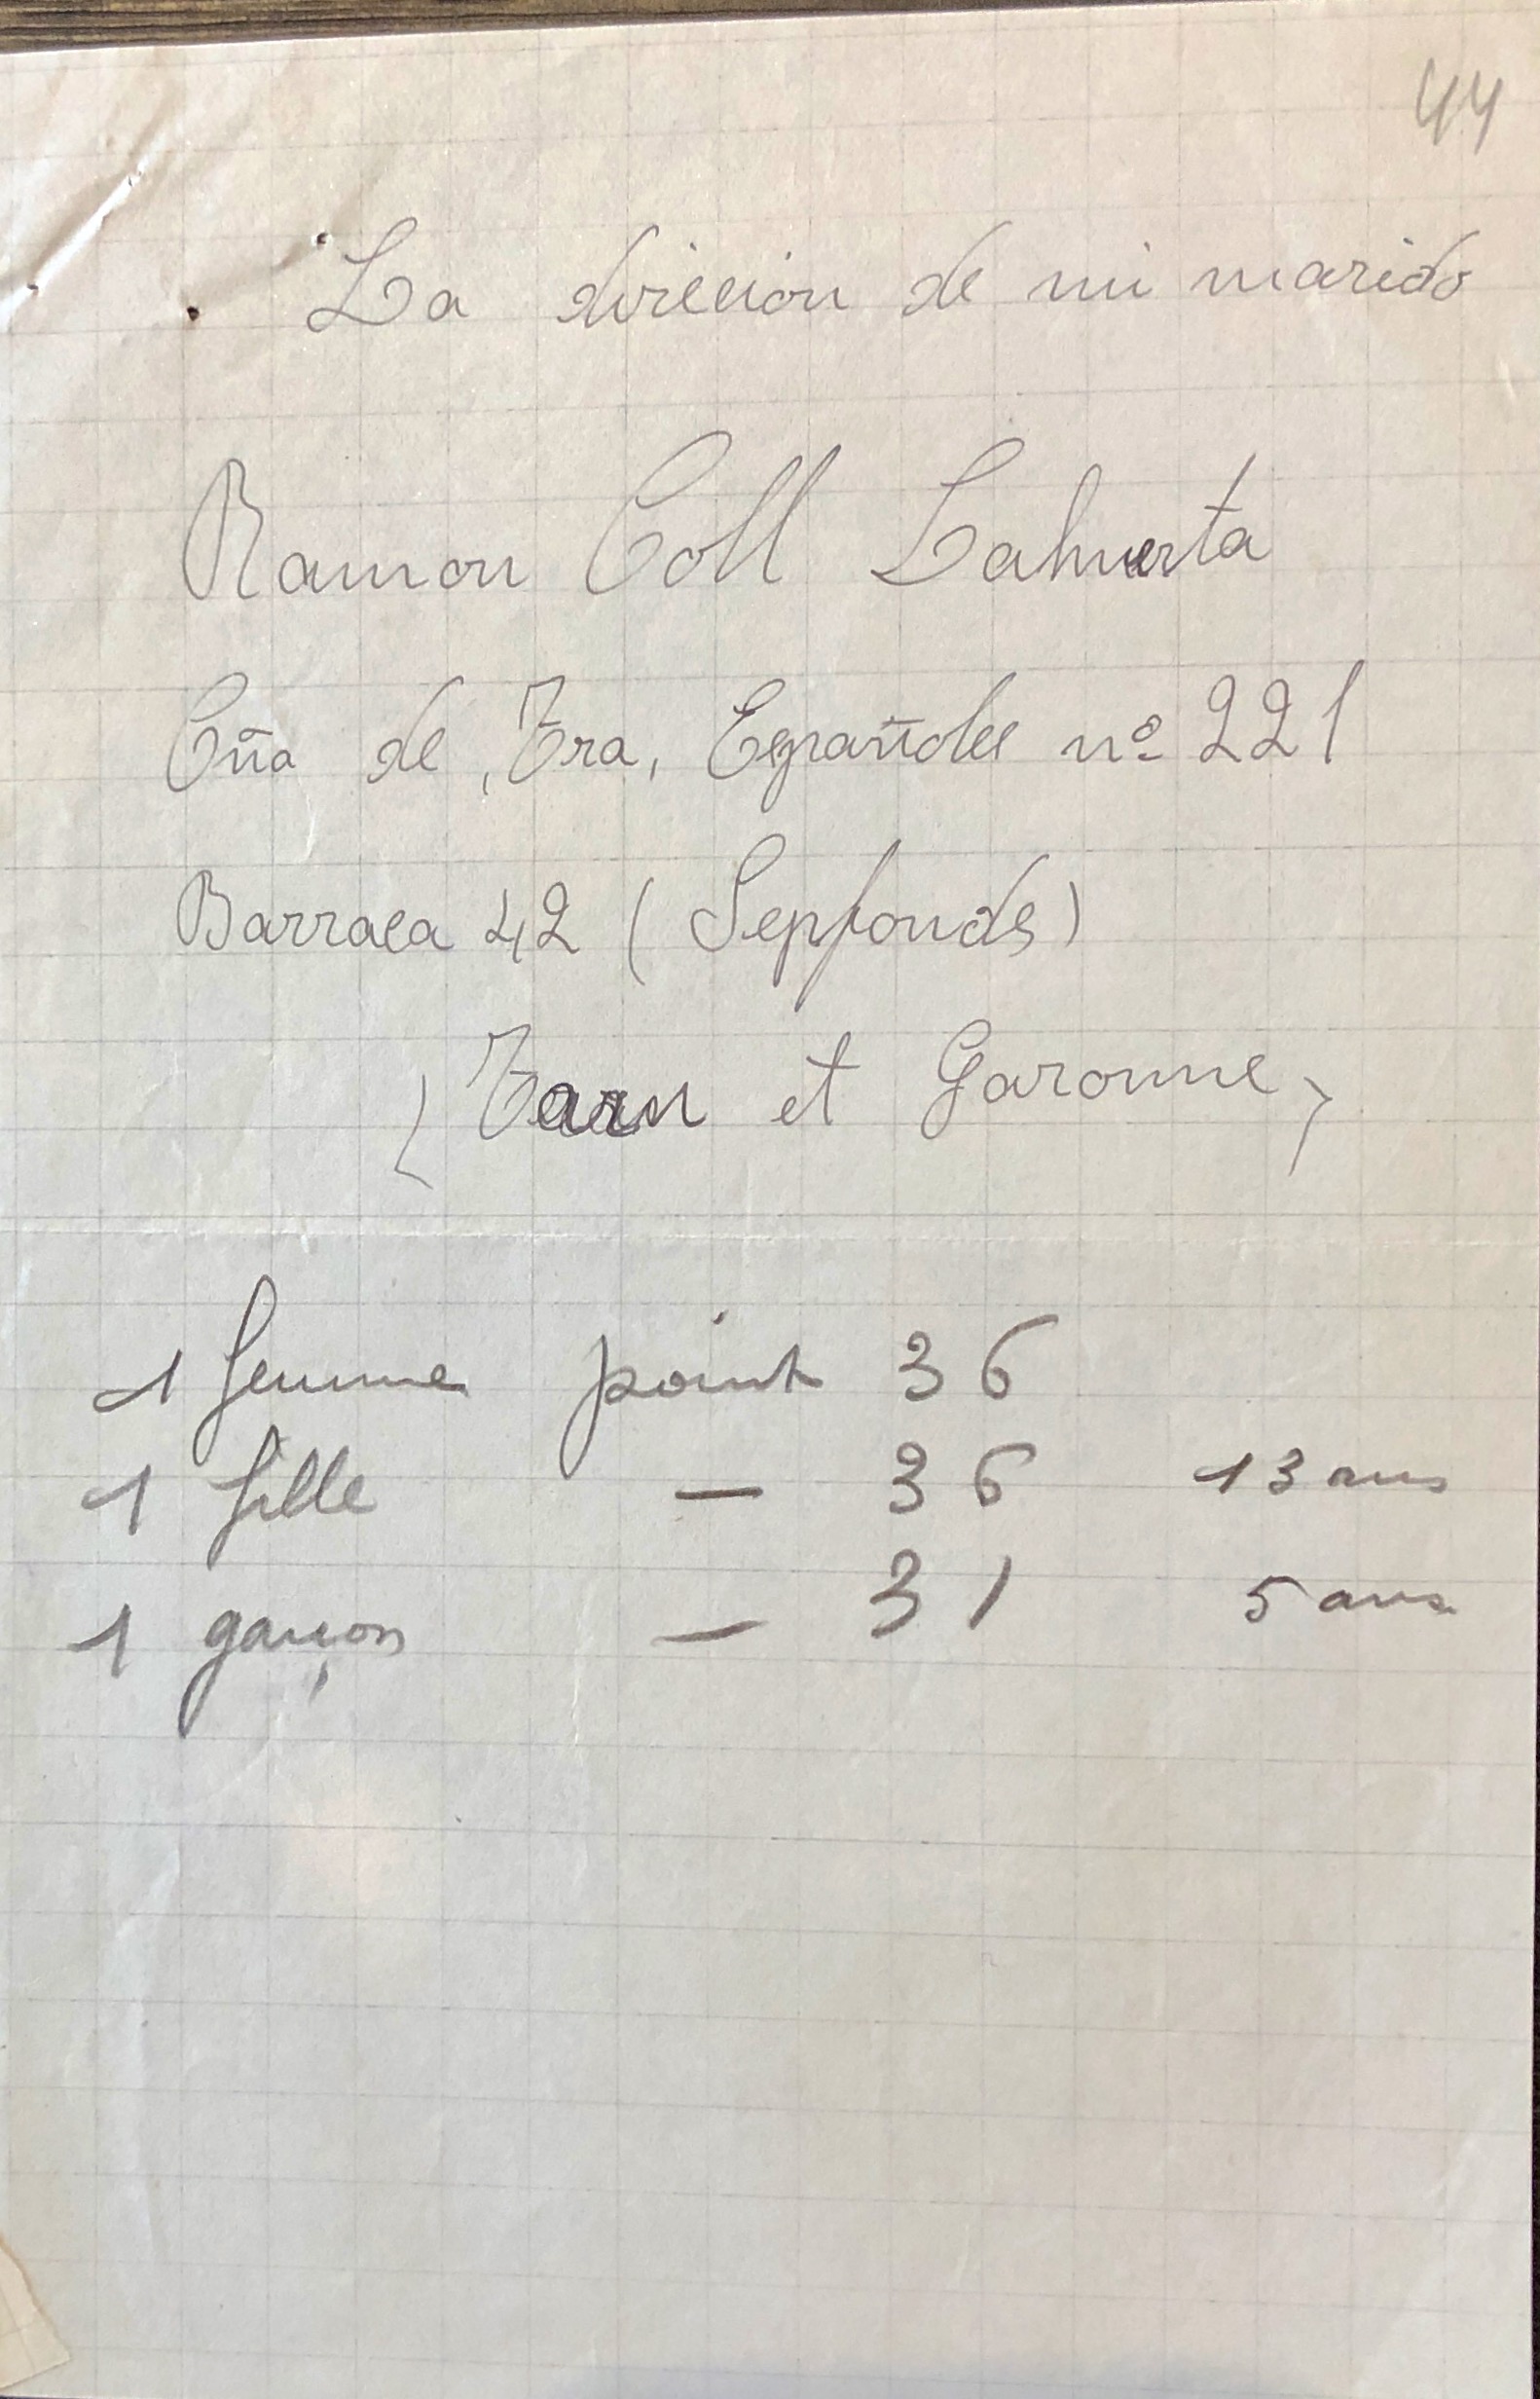 44
La direcion de mi marido
Ramon Coll Lahuerta
Cñia de, Tra, Españoles nº 221
Barraca 42 ( Sepfonds)
( Tarn et Garonne)
1 femme point 36
1 fille — 36 13 ans
1 garçon — 31 5 ans